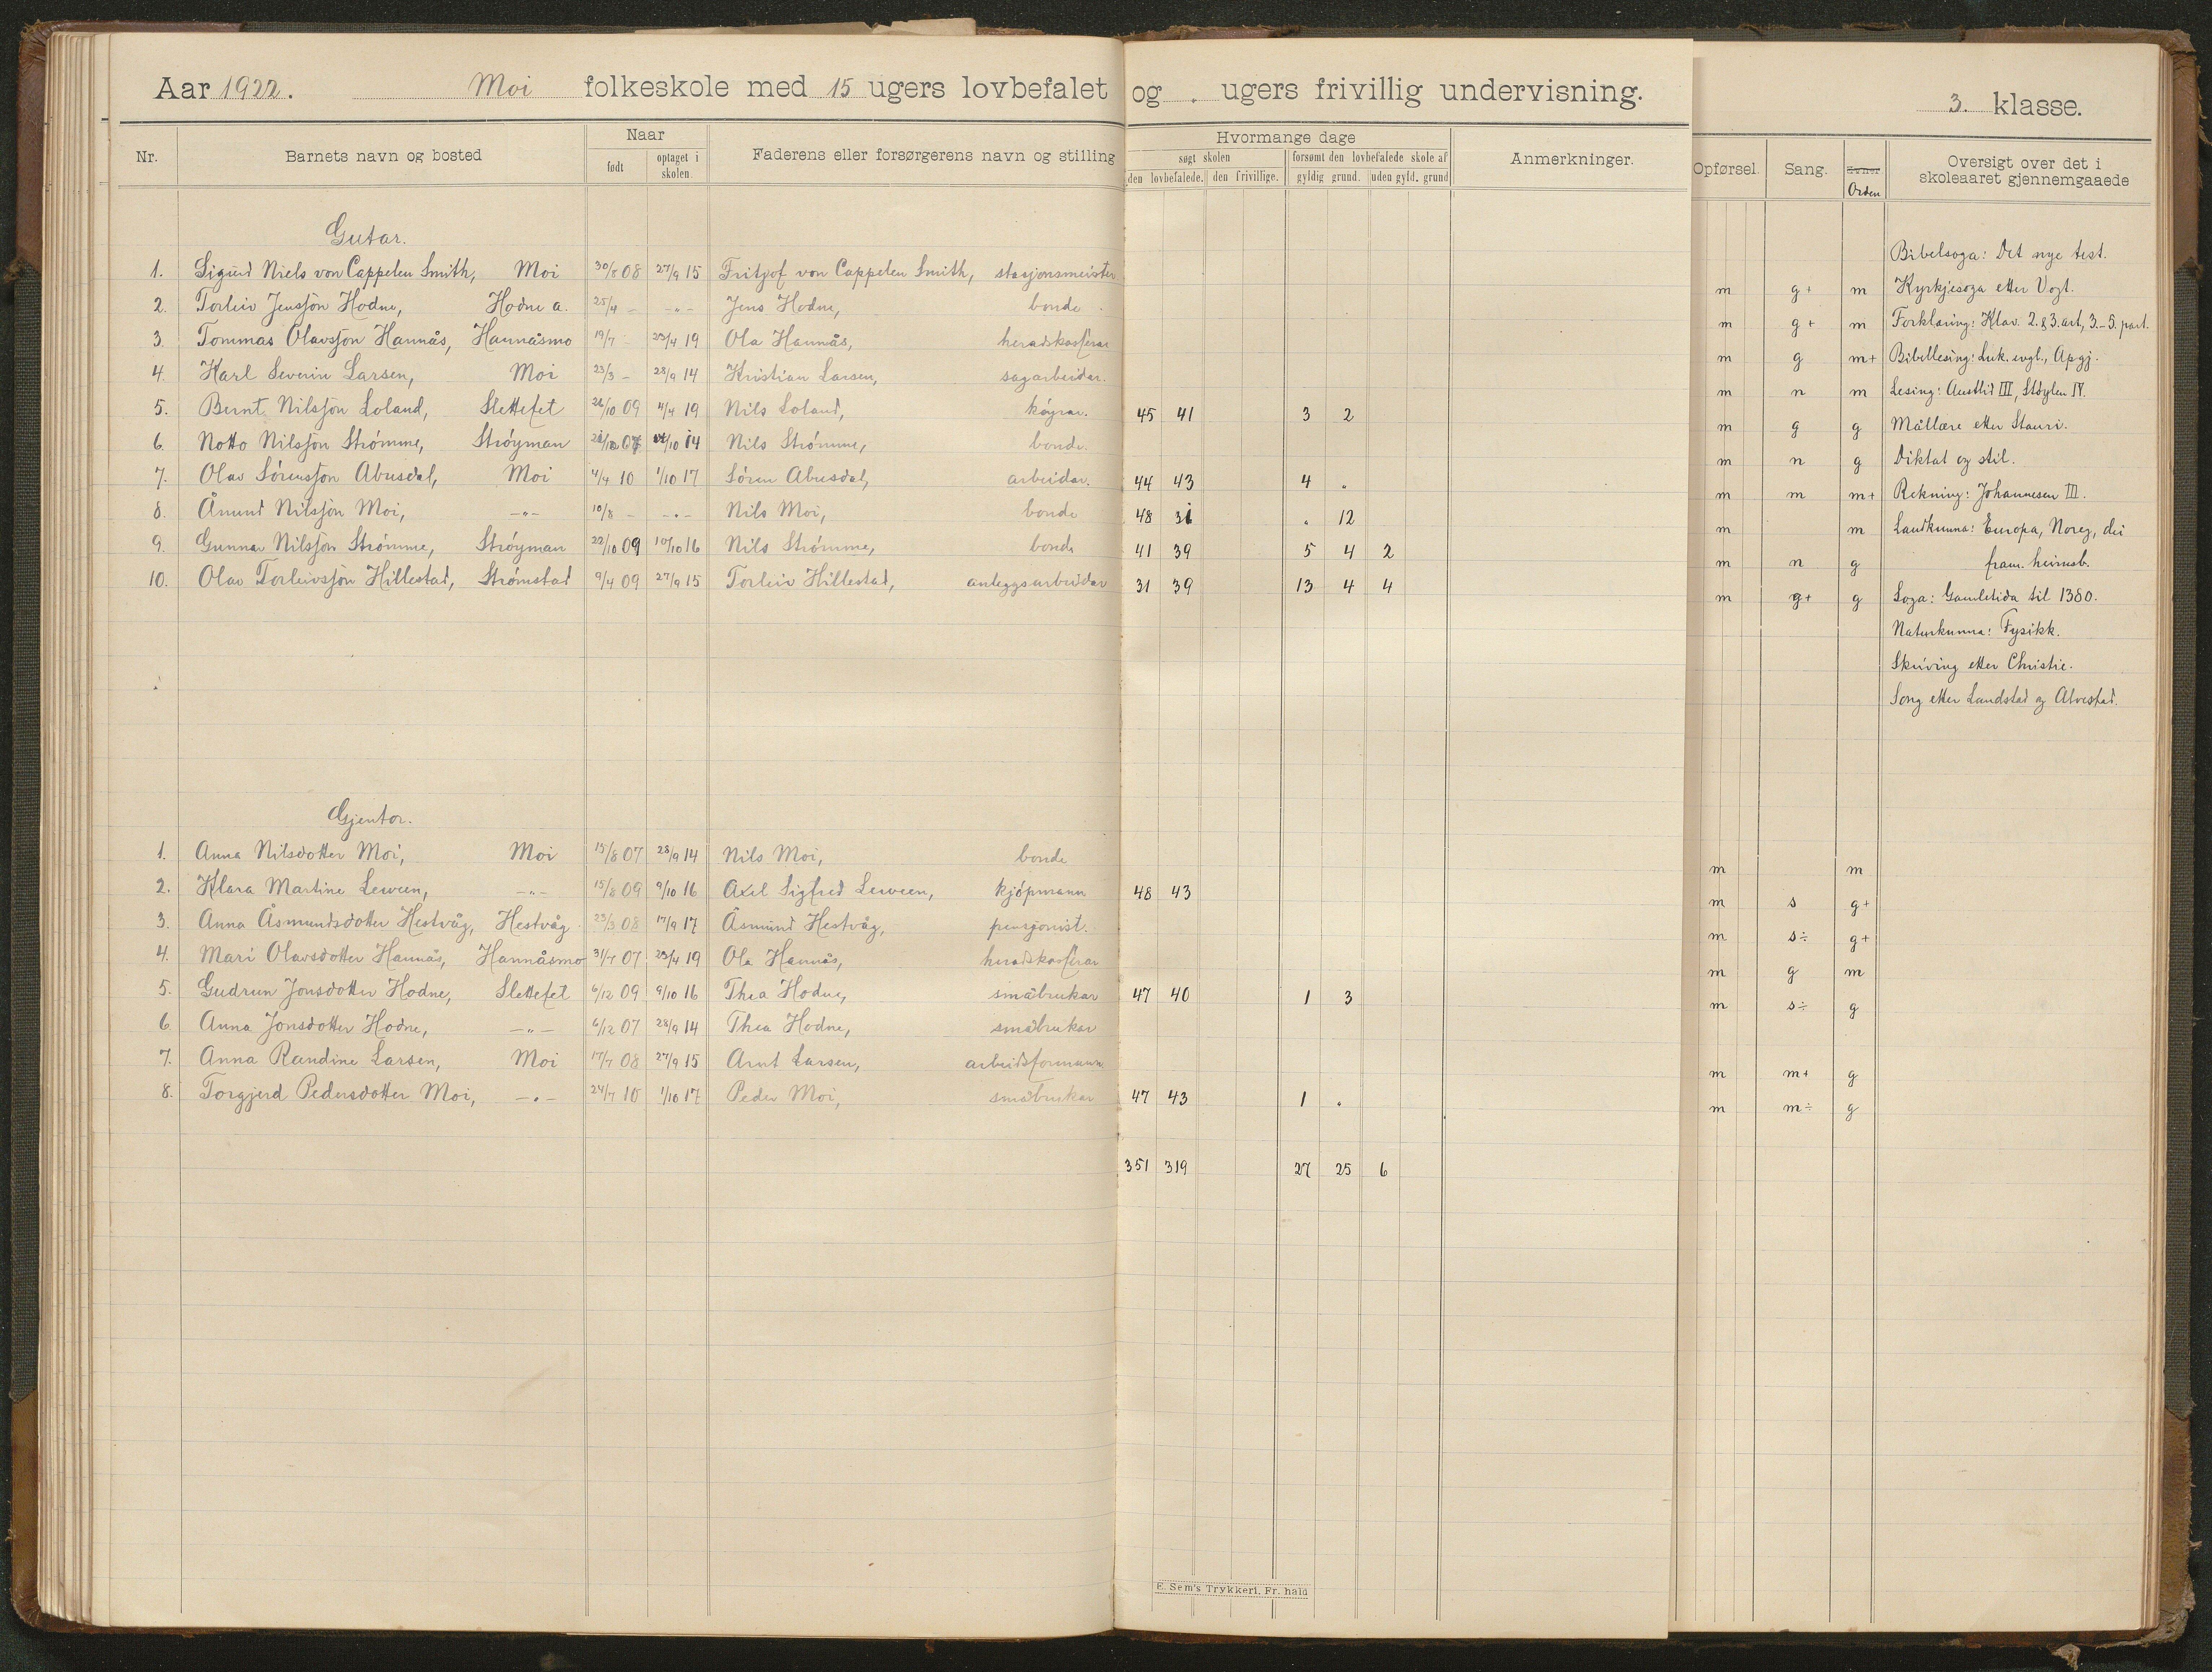 Aar 1922. Moi folkeskole med 15 ugers lovbefalet og . ugers frivillig undervisning. 3. klasse.
Nr. Barnets navn og bosted Naar født optaget i skolen. Faderens eller forsørgerens navn og stilling Hvormange dage søgt skolen den lovbefalede. den frivillige. forsømt den lovbefalede skole af gyldig grund. uden gyld. grund Anmerkninger. Opførsel. Sang. Evner Orden Oversigt over det i skoleaaret gjennemgaaede
Gutar.
1. Sigurd Niels von Cappelen Smith, Moi 30/8 08 27/9 15 Fritjof von Cappelen Smith, stasjonsmeister m g+ m
2. Torleiv Jensson Hodne, Hodne a. 25/4 — -"- Jens Hodne, bonde m g+ m
3. Tommas Olavsson Hannås, Hannåsmo 19/7 - 23/4 19 Ola Hannås, heradskasserar m g m+
4. Karl Severin Larsen, Moi 23/3 - 28/9 14 Kristian Larsen, sagarbeidar. m n m
5. Bernt Nilsson Loland, Slettefet 26/10 09 4/4 19 Nils Loland, køyrar. 45 41 3 2 m g g
6. Notto Nilsson Strømme, Strøyman 07 14 Nils Strømme, bonde. m n g
7. Olav Sørensson Abusdal, Moi 4/4 10 1/10 17 Søren Abusdal, arbeidar. 44 43 4 " m m m+
8. Åmund Nilsson Moi, -"- 10/8 - -"- Nils Moi, bonde 48 31 " 12 m m
9. Gunnar Nilsson Strømme, Strøyman 22/10 09 10/10 16 Nils Strømme, bonde 41 39 5 4 2 m n g
10. Olav Torleivsson Hillestad, Strømstad 9/4 09 27/9 15 Torleiv Hillestad, anleggsarbeidar 31 39 13 4 4 m g+ g
Bibelsoga: Det nye test.
Kyrkjesoga etter Vogt.
Forklaring: Klav. 2. & 3. art, 3.-5. part.
Bibellesing: Luk. evgl., Apgj.
Lesing: Austlid III, Støylen IV.
Mållære etter Stauri.
Diktat og stil.
Rekning: Johannesen III.
Landkunna: Europa, Noreg, dei
fram. heimsb.
Soga: Gamletida til 1380.
Naturkunna: Fysikk.
Skriving etter Christie.
Song etter Landstad og Alvestad.
Gjentor.
1. Anna Nilsdotter Moi, Moi 15/8 07 28/9 14 Nils Moi, bonde m m
2. Klara Martine Leween, -"- 15/8 09 9/10 16 Axel Sigfred Leween, kjøpmann 48 43 m s g+
3. Anna Åsmundsdotter Hestvåg, Hestvåg 23/3 08 17/9 17 Åsmund Hestvåg, pensjonist. m s÷ g+
4. Mari Olavsdotter Hannås, Hannåsmo 31/7 07 23/4 19 Ola Hannås, heradskasserar m g m
5. Gudrun Jonsdotter Hodne, Slettefet 6/12 09 9/10 16 Thea Hodne, småbrukar 47 40 1 3 m s÷ g
6. Anna Jonsdotter Hodne, -"- 6/12 07 28/9 14 Thea Hodne, småbrukar
7. Anna Randine Larsen, Moi 17/7 08 27/9 15 Arnt Larsen, arbeidsformann m m+ g
8. Torgjerd Pedersdotter Moi, -"- 24/7 10 1/10 17 Peder Moi, småbrukar 47 43 1 " m m÷ g
351 319 27 25 6
E. Sem's Trykkeri, Fr. hald